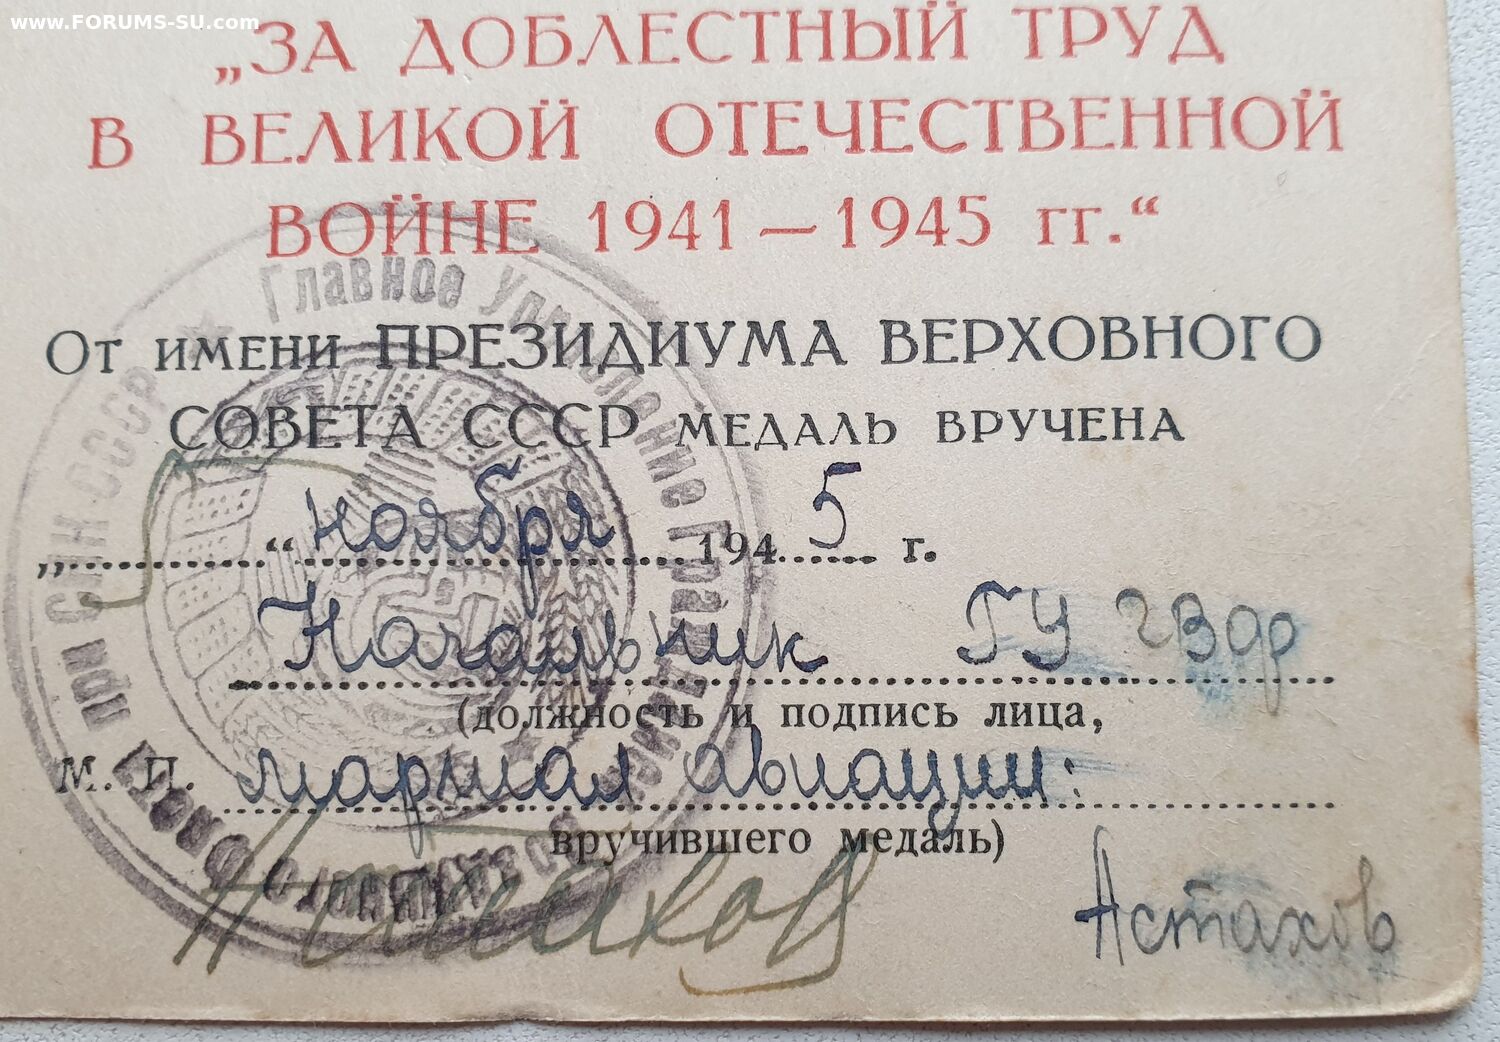 www.FORUMS-SU.com
„ЗА ДОБЛЕСТНЫЙ ТРУД
В ВЕЛИКОЙ ОТЕЧЕСТВЕННОЙ
ВОЙНЕ 1941—1945 гг.“
От имени ПРЕЗИДИУМА ВЕРХОВНОГО
СОВЕТА СССР МЕДАЛЬ ВРУЧЕНА
„ “ ноября 1945 г.
Начальник ГУ ГВФ
(должность и подпись лица,
М. П. маршал авиации:
вручившего медаль)
Астахов Астахов
Главное Управление Гражданского Воздушного Флота при СНК СССР